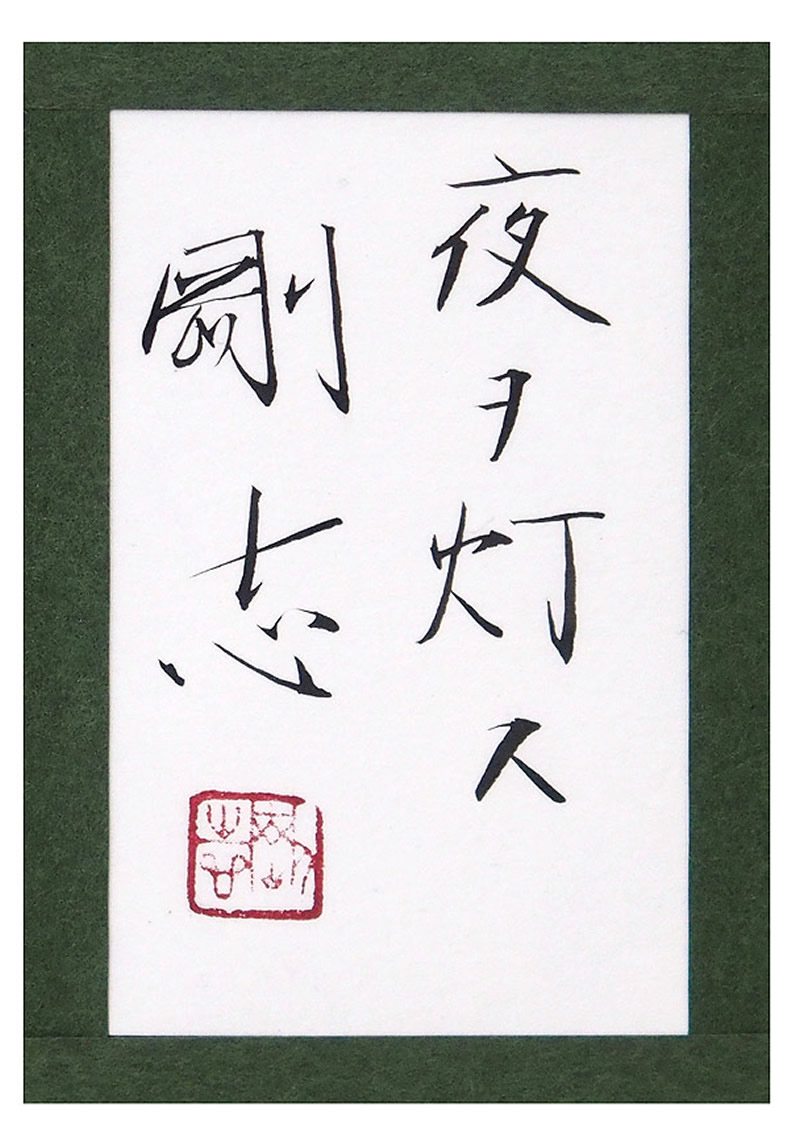 夜ヲ灯ス
剛志